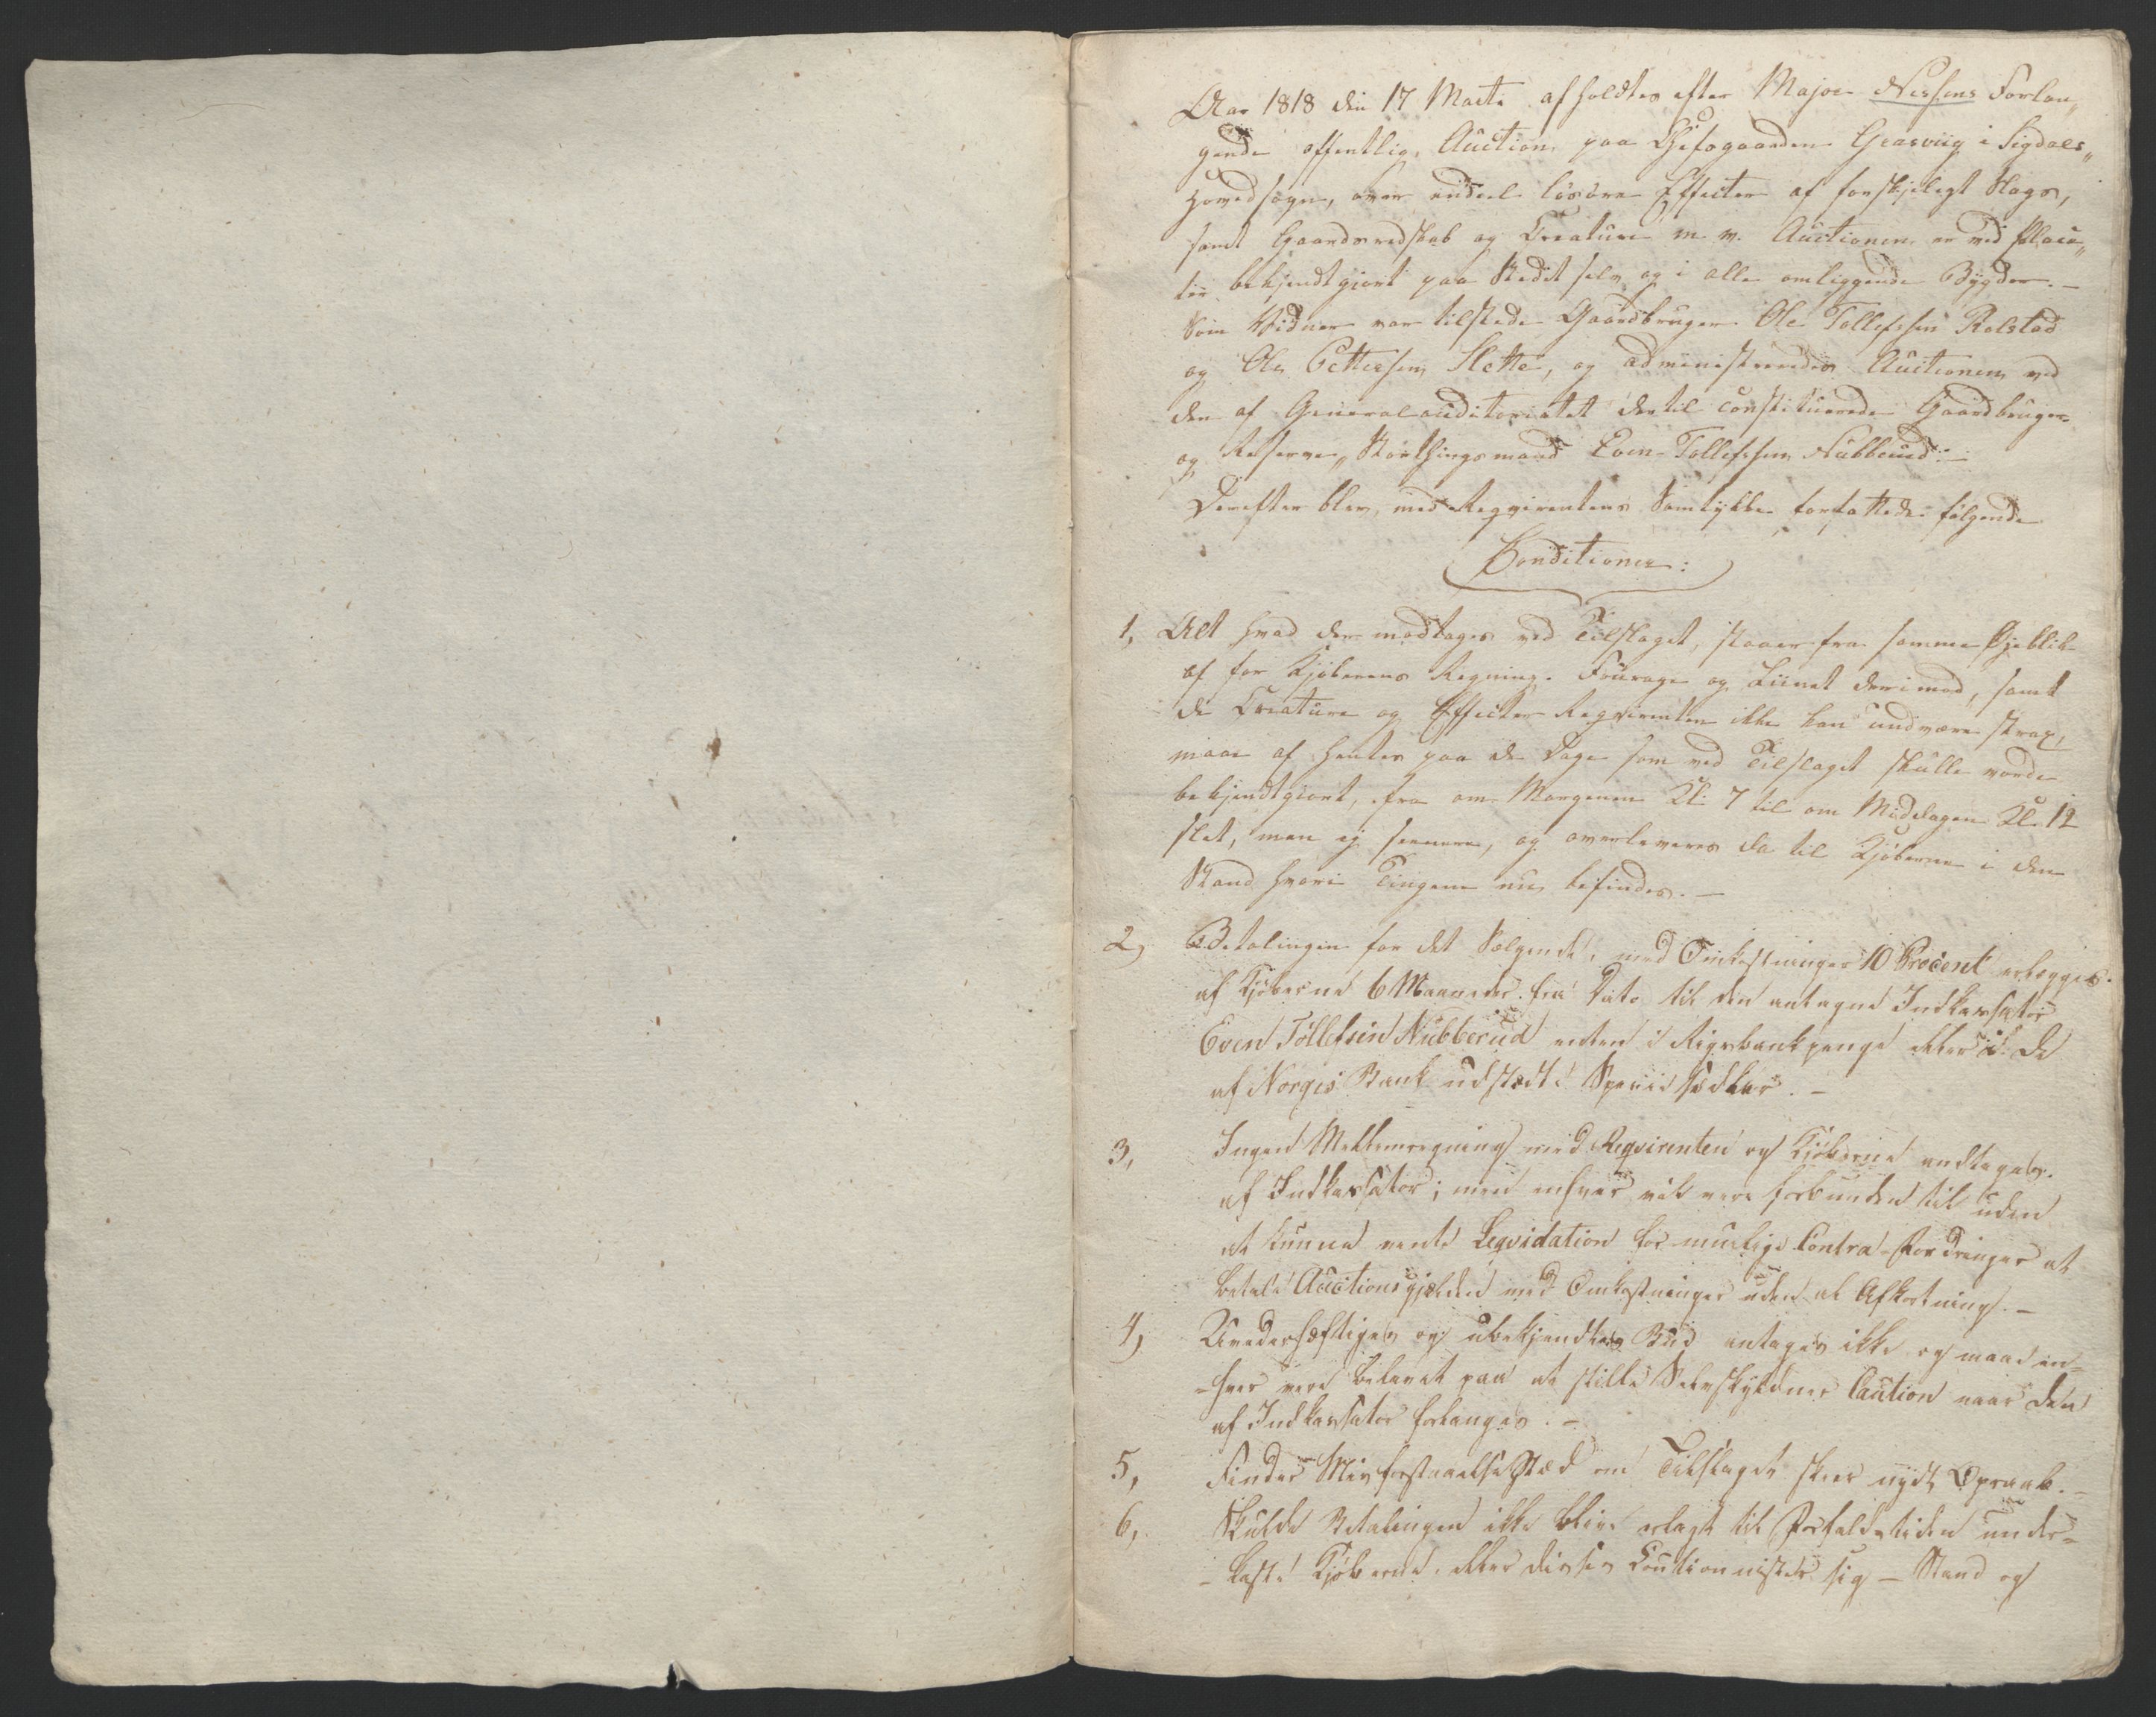 Aar 1818 din 17 Marti afholdtes efter Major Nissens Forlan„
gende offentlig Auction paa Chefsgaarden Grasviig i Sigdals„
Hovedsogn, over endeel lösöre Effecter af forskjeligt Slags,
samt Gaardsredskab og Creature m. v. Auctionen er ved Placa„
ter bekjendtgjort paa Stedet selv og i alle omliggende Bÿgder. —
Som Vidner var tilstede Gaardbruger Ole Tollefssen Rolstad
og Ole Pettersen Slette, og administreredes Auctionen ved
den af Generalauditoriatet dertil constituerede Gaardbruger
og Reserve„Storthingsmand Even Tollefssen Nubberud. —
Derefter blev, med Reqvirentens Samtykke forfattede følgende
Conditioner:
1, Alt hvad der modtages ved Tilslaget, staaer fra samme Øjeblik
af for Kjøberens Regning. Fourage og Liinet derimod, samt
de Creature og Effecter Reqvirenten ikke kan undvære strax,
maae afhentes paa de Dage som ved Tilslaget skulle vorde
bekjendtgiort, fra om Morgenen Kl: 7 til om Middagen Kl. 12
slet, men ej seenere, og overleveres da til Kjøberne i den
Stand hvori Tingene nu befindes. —
2, Betalingen for det Sælgende, med Omkostninger 10 Procent erlægges
af Kjøberne 6 Maaneder fra Dato til den antagne Indkassator
Even Tollefsen Nubberud enten i Rigsbankpenge eller i de
af Norges Bank udstædte Speciesedler. —
3, Ingen Mellemregning med Reqvirenten og Kjøberne modtages
af Indkassator; men enhver vil være forbunden til uden
at kunne vente Leqvidation for muelige Contra-Fordringer at
betale Auctionsgjælden med Omkostninger uden al Afkortning. —
4, Uvederhæftiges og ubekjendtes Bud antages ikke og maae en=
=hver være belavet paa at stille Selvskyldner Caution naar den
af Indkassator forlanges. —
5, Findes Misforstaaelse Stæd om Tilslaget skeer nydt Opraab. —
6, Skulde Betalingen ikke blive erlagt til Forfaldstiden under=
=kaste Kjøberne eller disses Coutionnister sig — Stand og